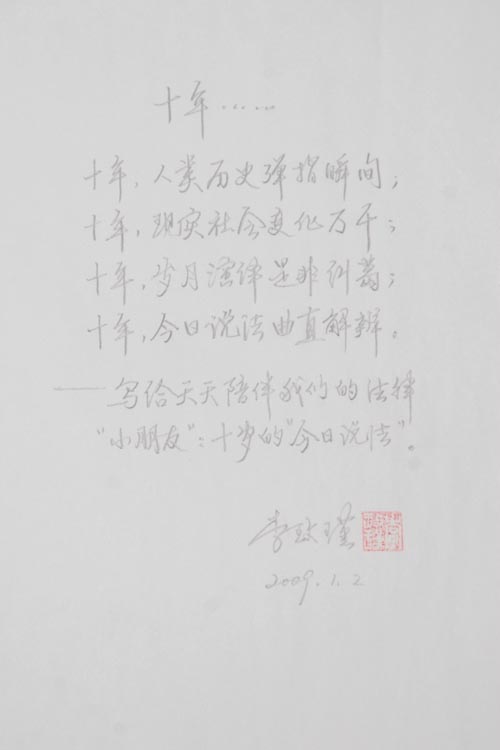 十年……
十年，人类历史弹指瞬间；
十年，现实社会变化万千；
十年，岁月演绎是非纠葛；
十年，今日说法曲直解辨。
——写给天天陪伴我们的法律
“小朋友”：十岁的“今日说法”。
李玫瑾
2009.1.2